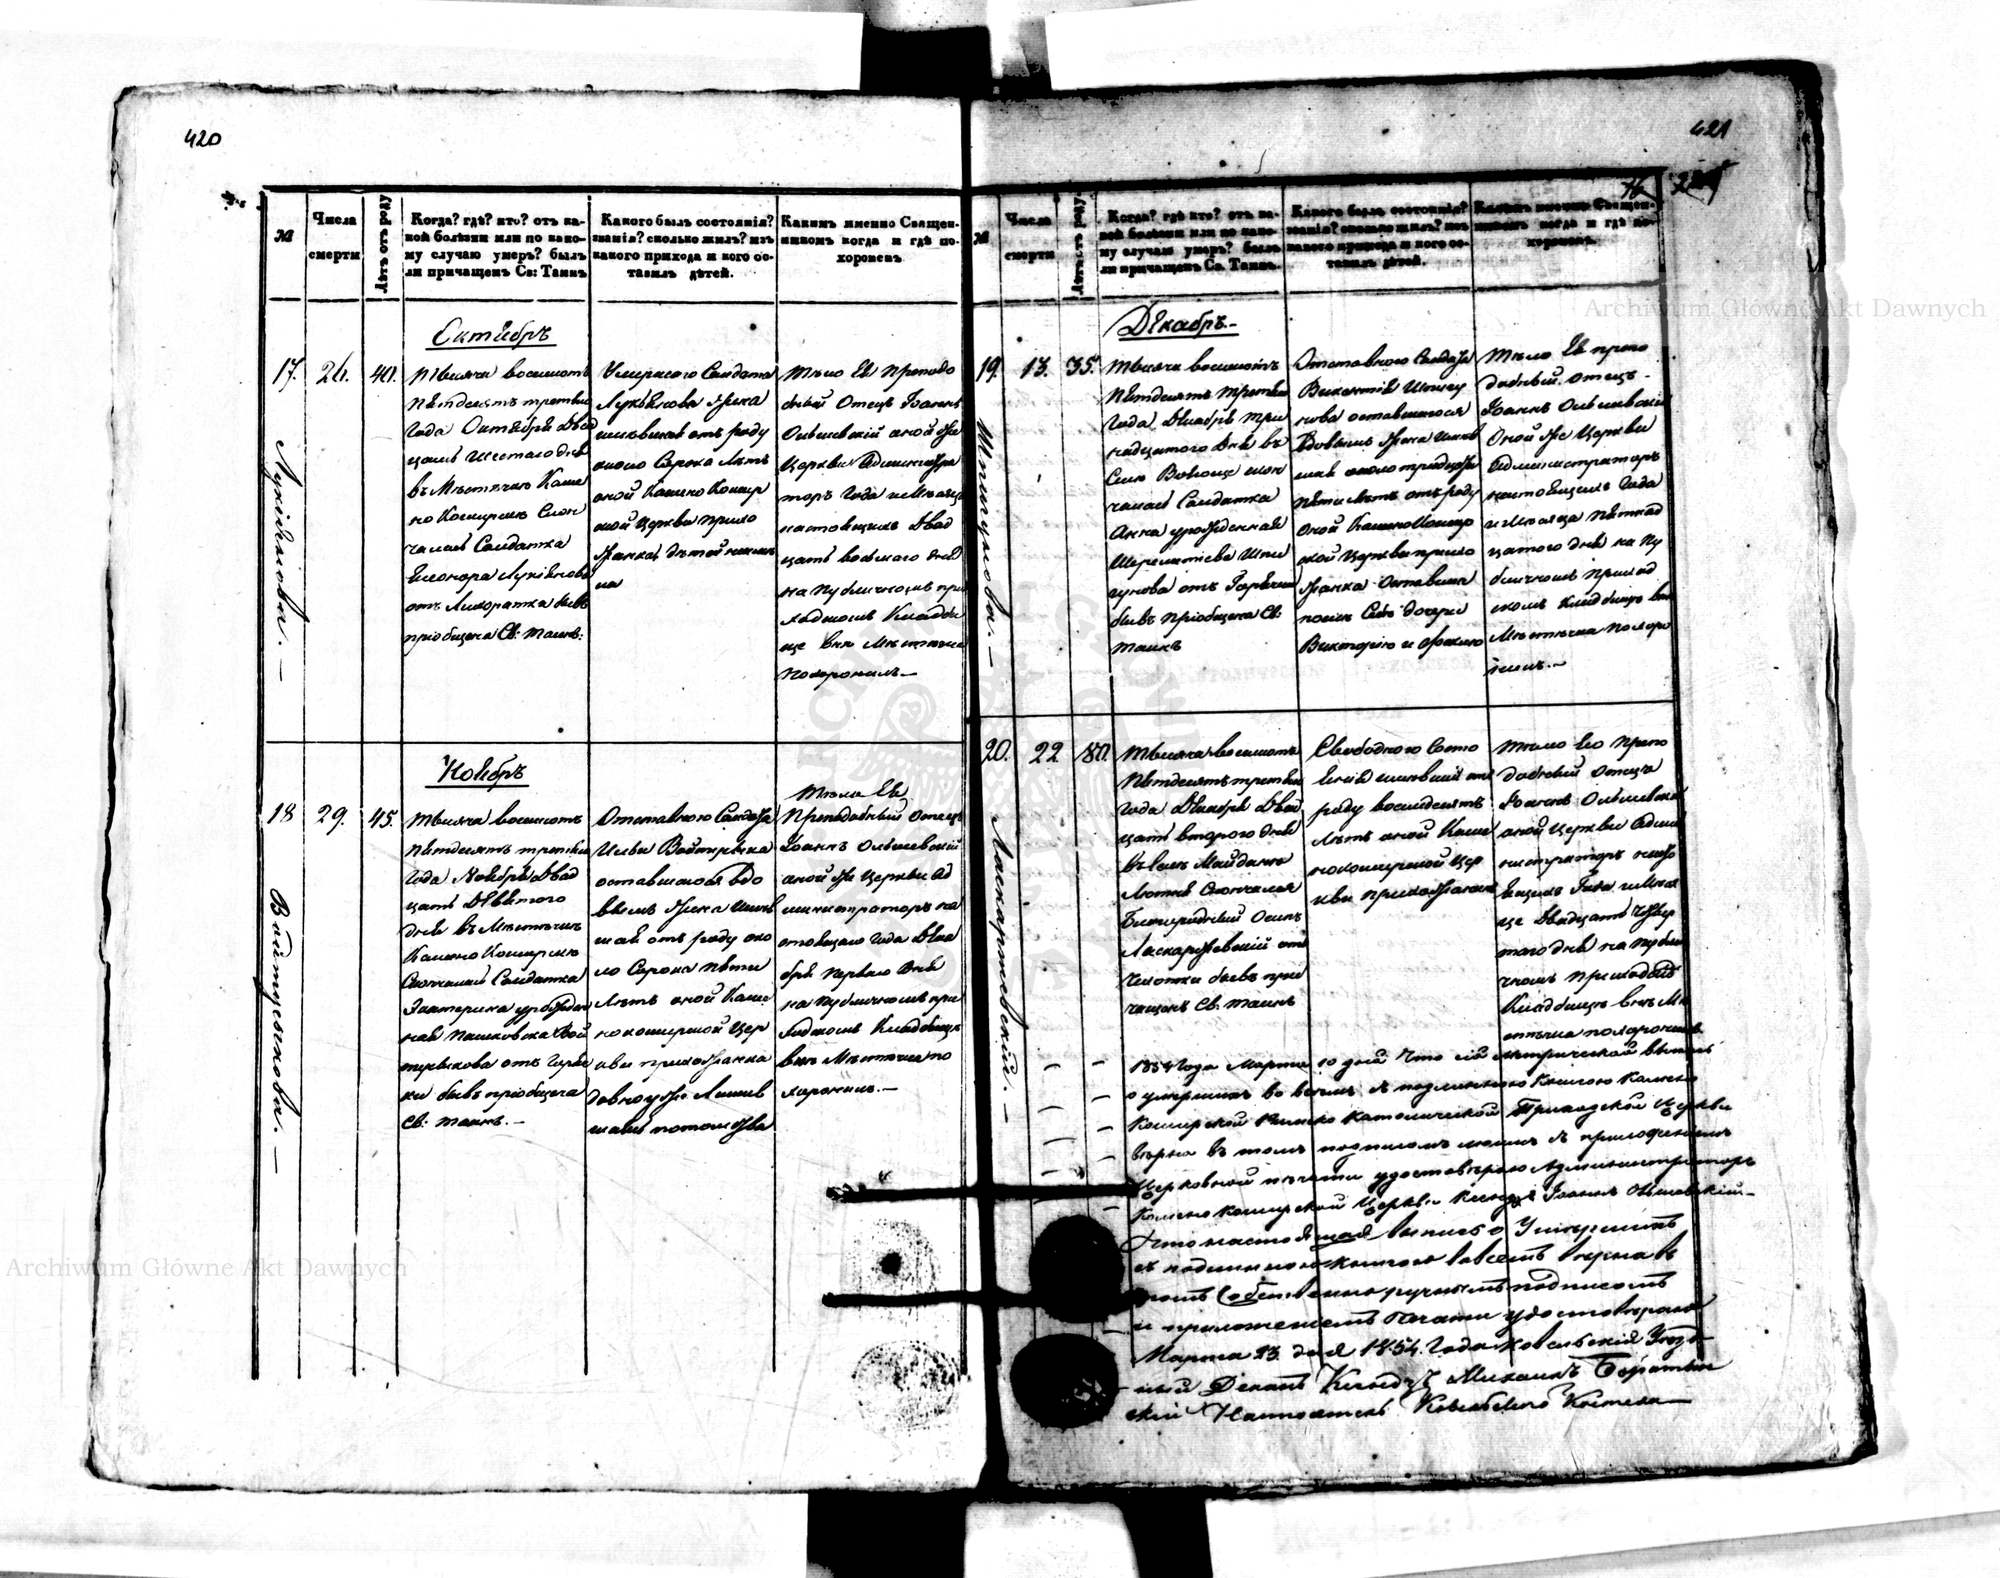 420
№
Числа
смерти
Лѣтъ отъ роду
Когда? гдѣ? кто? отъ ка-
кой болѣзни или по како-
му случаю умеръ? былъ
ли причащенъ Св: Таинъ
Какого былъ состоянія?
званія? сколько жилъ? изъ
какого прихода и кого ос-
тавилъ дѣтей.
Какимъ именно Священ-
никомъ когда и гдѣ по-
хороненъ
Октябръ
17. 26. 40.
Лукіянова. —
Тысяча восемсотъ
пятдесятъ третьяго
года Октября двад
цать шестаго дня
въ Мѣстечкѣ Каме
но Коширскѣ Скон
чалась Солдатка
Елеонора Лукіянова
отъ Лихорадки бывъ
пріобщена Св: таинъ.
Умершего Солдата
Лукьянова жена
жившая отъ роду
около Сорока лѣтъ
оной Камено Кошир
ской Церкви прихо
жанка дѣтей неимѣ
ла
Тѣло Ея Преподо
бный Отецъ Іоаннъ
Ольшевскій оной же
Церкви Администра
торъ Года и Мѣсяца
настоящихъ двад
цать восьмого дня
на Публичномъ при
ходскомъ Кладби
ще внѣ Мѣстечка
Похоронилъ. —
Ноябръ
18 29. 45.
Войтусикова. —
Тысяча восемсотъ
пятдесятъ третьяго
года Ноября двад
цать девятого
дня въ Мѣстечкѣ
Камено Коширскѣ
Скончалась Солдатка
Екатерина урожден
ная Пашковска Вой
отъ Горяч
ки бывъ пріобщена
Св: таинъ. —
Отставного Солдата
Ильи
оставшаяся вдо
вою жена жив
шая отъ роду око
ло Сорока пяти
Лѣтъ оной Каме
нокоширской Цер
кви прихожанка
потомства
Тѣло Ея
Преподобный Отецъ
Іоаннъ Ольшевскій
оной же Церкви Ад
министраторъ на
стоящаго года Дека
бря Первого дня
на публичномъ при
ходскомъ Кладбищѣ
внѣ Мѣстечка по
хоронилъ. —
421
76
№
Числа
смерти
Лѣтъ отъ роду.
Когда? гдѣ? кто? отъ ка-
кой болѣзни или по како-
му случаю умеръ? былъ
ли причащенъ Св. Таинъ.
Какого былъ состоянія?
званія? сколько жилъ? изъ
какого прихода и кого ос-
тавилъ дѣтей.
Какимъ именно Священ-
никомъ когда и гдѣ по-
хороненъ.
Декабръ. —
19. 13. 35.
Шпигунова. —
Тысяча восемсотъ
Пятдесятъ третьяго
года Декабря три
надцатого дня въ
Селѣ скон
чалась Солдатка
Анна урожденная
Шереметева Шпи
гунова отъ Горячки
бывъ пріобщена Св:
таинъ
Отставного Солдата
Викентія Шпигу
нова оставшаяся
вдовою жена жив
шая около тридцати
пяти лѣтъ отъ роду
оной Камено Кошир
ской Церкви прихо
жанка оставила
после Себя дочери
Викторію и
Тѣло Ея препо
добный Отецъ
Іоаннъ Ольшевскій
Оной же Церкви
Администраторъ
настоящихъ Года
и Мѣсяца пятнад
цатого дня на Пу
бличномъ приход
скомъ кладбищѣ внѣ
Мѣстечка похоро
нилъ. —
20. 22 80.
Ласкаржевскій. —
Тысяча восемсотъ
Пятдесятъ третьяго
года Декабря двад
цать второго дня
въ Селѣ Майданъ
Скончался
Осипъ
Ласкаржевскій отъ
Чахотки бывъ при
чащенъ Св. таинъ
Свободного Состо
янія жившій отъ
роду восемдесятъ
лѣтъ оной Каме
нокоширской Цер
кви прихожанинъ
Тѣло Его Препо
добный Отецъ
Іоаннъ Ольшевскій
оной Церкви Адми
нистраторъ насто
ящихъ Года и Мѣся
ца Двадцать Четвер
таго дня на Публи
чномъ приходскомъ
Кладбищѣ внѣ Мѣ
стечка похоронилъ
1854 Года Марта 10 дня Что сія метрической выписъ
о умершихъ во всемъ съ подлинною Книгою Камено
Коширской Римско Католической Приходской Церкви
вѣрна въ томъ подписомъ моимъ съ приложеніемъ
Церковной печати удостовѣряю Администраторъ
Камено Коширской Церкви Ксендзъ Іоаннъ Ольшевскій —
Что настоящая выпись о Умершихъ
съ подлинною Книгою во всемъ вѣрна въ
томъ Собственноручнымъ подписомъ
и приложеніемъ Печати удостовѣряю
Марта 23 дня 1854 Года Ковельскій Уѣзд-
ный Деканъ Ксендзъ Михаилъ
Ковельского Костела —
Archiwum Główne Akt Dawnych
Archiwum Główne Akt Dawnych